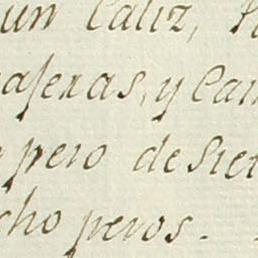 un Caliz, P
aseras, y Can
pero de Siet
cho peros.